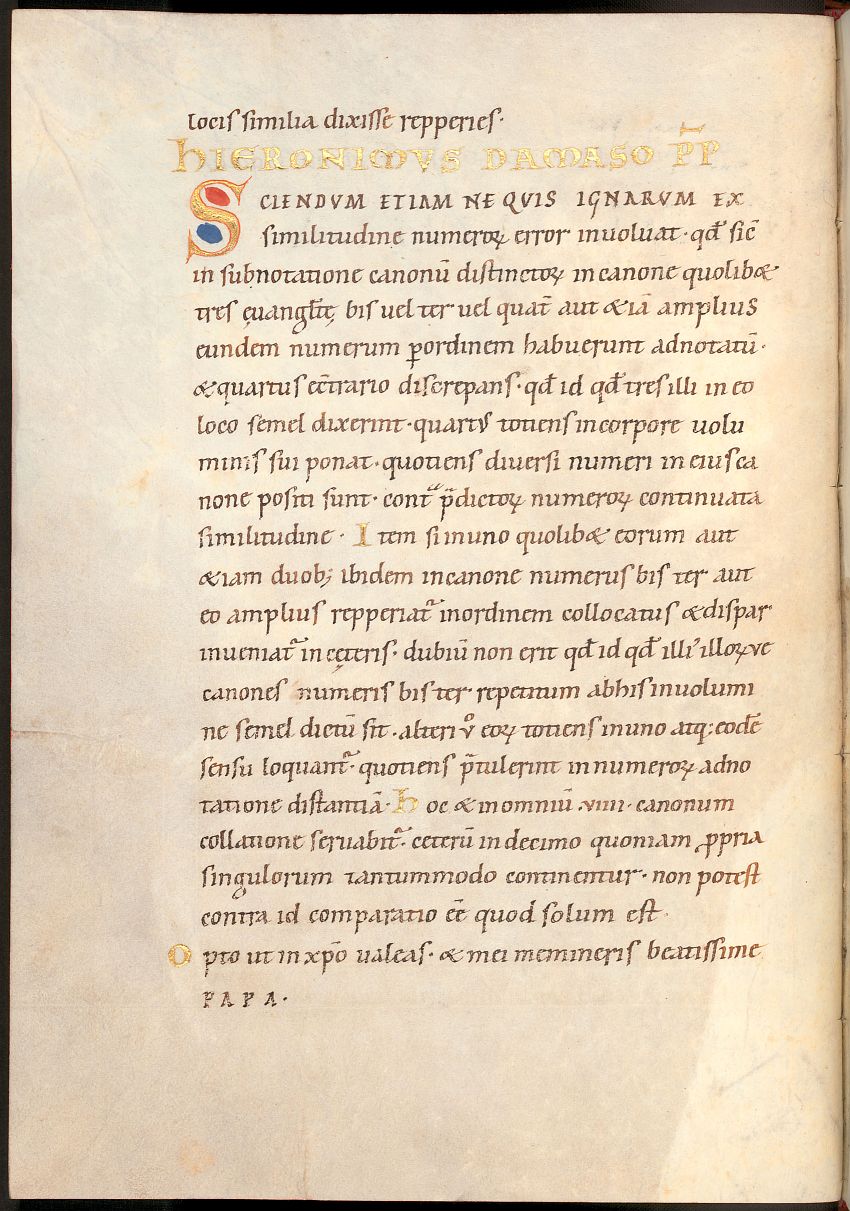 locis similia dixisse repperies·
HIERONIMVS DAMASO PP̄
SCIENDVM ETIAM NE QUIS IGNARUM EX
similitudine numeroꝝ error inuoluat· qđ sic̄
in subnotatione canonū distinctoꝝ in canone quolib&
tres ęuangl̄tę bis uel ter uel quat̄ aut &iā amplius
eundem numerum ꝑ ordinem habuerunt adnotatū·
& quartus ec̄trario discrepans· qđ id qđ tres illi in eo
loco semel dixerint· quartꝰ totiens in corpore uolu
minis sui ponat· quotiens diuersi numeri in eius ca
none positi sunt· cont͛ p̄dictoꝝ numeroꝝ continuata
similitudine· Item si in uno quolib& eorum aut
&iam duob; ibidem in canone numerus bis ter aut
eo amplius repperiat͛ in ordinem collocatus & dispar
inueniat͛ in cęteris· dubiū non erit qđ id qđ illi ł illoꝝ ue
canones numeris bis ter repetitum ab his in uolumi
ne semel dictū sit· alteri v̊ eoꝝ totiens in uno atq; eodē
sensu loquant͛· quotiens p̄tulerint in numeroꝝ adno
tatione distantiā· Hoc & in omniū ·viiii· canonum
collatione seruabit͛· ceterū in decimo quoniam ꝓpria
singulorum tantummodo continentur· non potest
contra id comparatio eē quod solum est·
Opto ut in xp̄o ualeas· & mei memineris beatissime
PAPA·